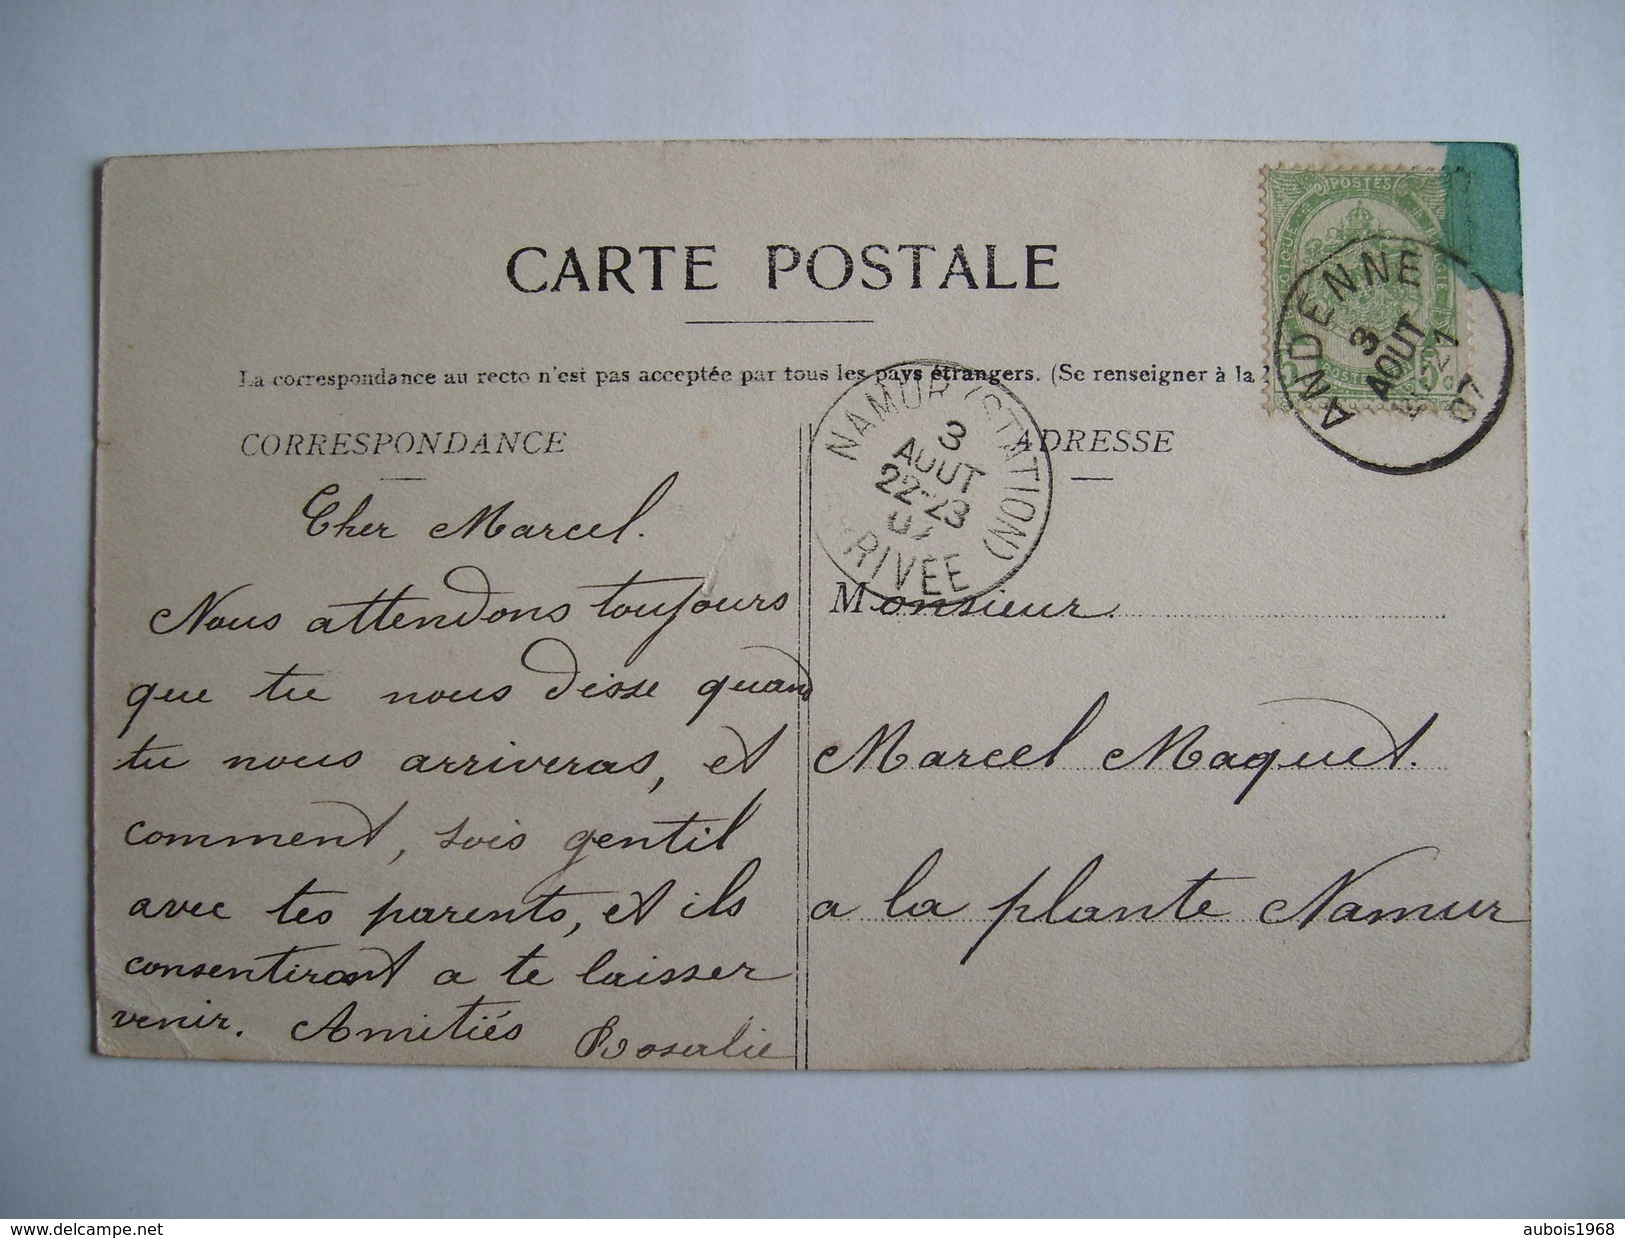 CARTE POSTALE
La correspondance au recto n'est pas acceptée par tous les pays étrangers. (Se renseigner à la
CORRESPONDANCE
Cher Marcel.
Nous attendons toujours
que tu nous disse quand
tu nous arriveras, et
comment, sois gentil
avec tes parents, et ils
consentiront a te laisser
venir. Amitiés
Rosalie
NAMUR (STATION)
3
AOUT
22-23
07
RIVÉE
ADRESSE
Monsieur.
Marcel Maquet.
a la plante Namur
POSTES
BELGIQUE
ANDENNE
3
AOUT
21
07
www.delcampe.net
aubois1968